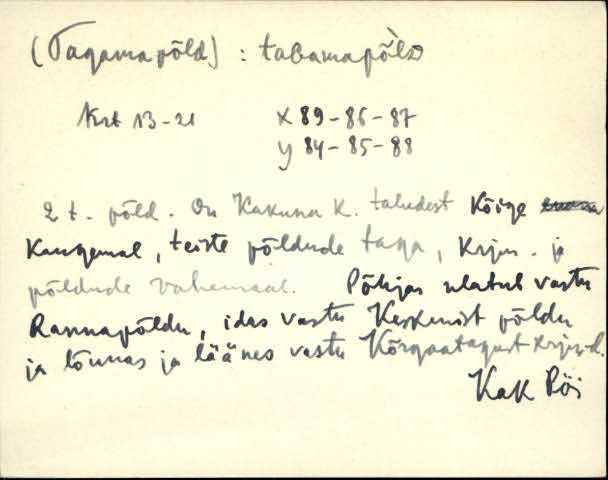 (Tagamapõld) : taGamapò̀ld
Krt 13-21 X 89-86-87
y 84-85-88
2 t. põld. On Kakuna k. taludest Kõige
Kaugemal, teiste põldude taga, Karjam. ja
põldude vahemaal. Põhjas ulatub vastu
Rannapõldu, idas vastu Keskmist põldu
ja lõunas ja läänes vastu
Kak Pöi